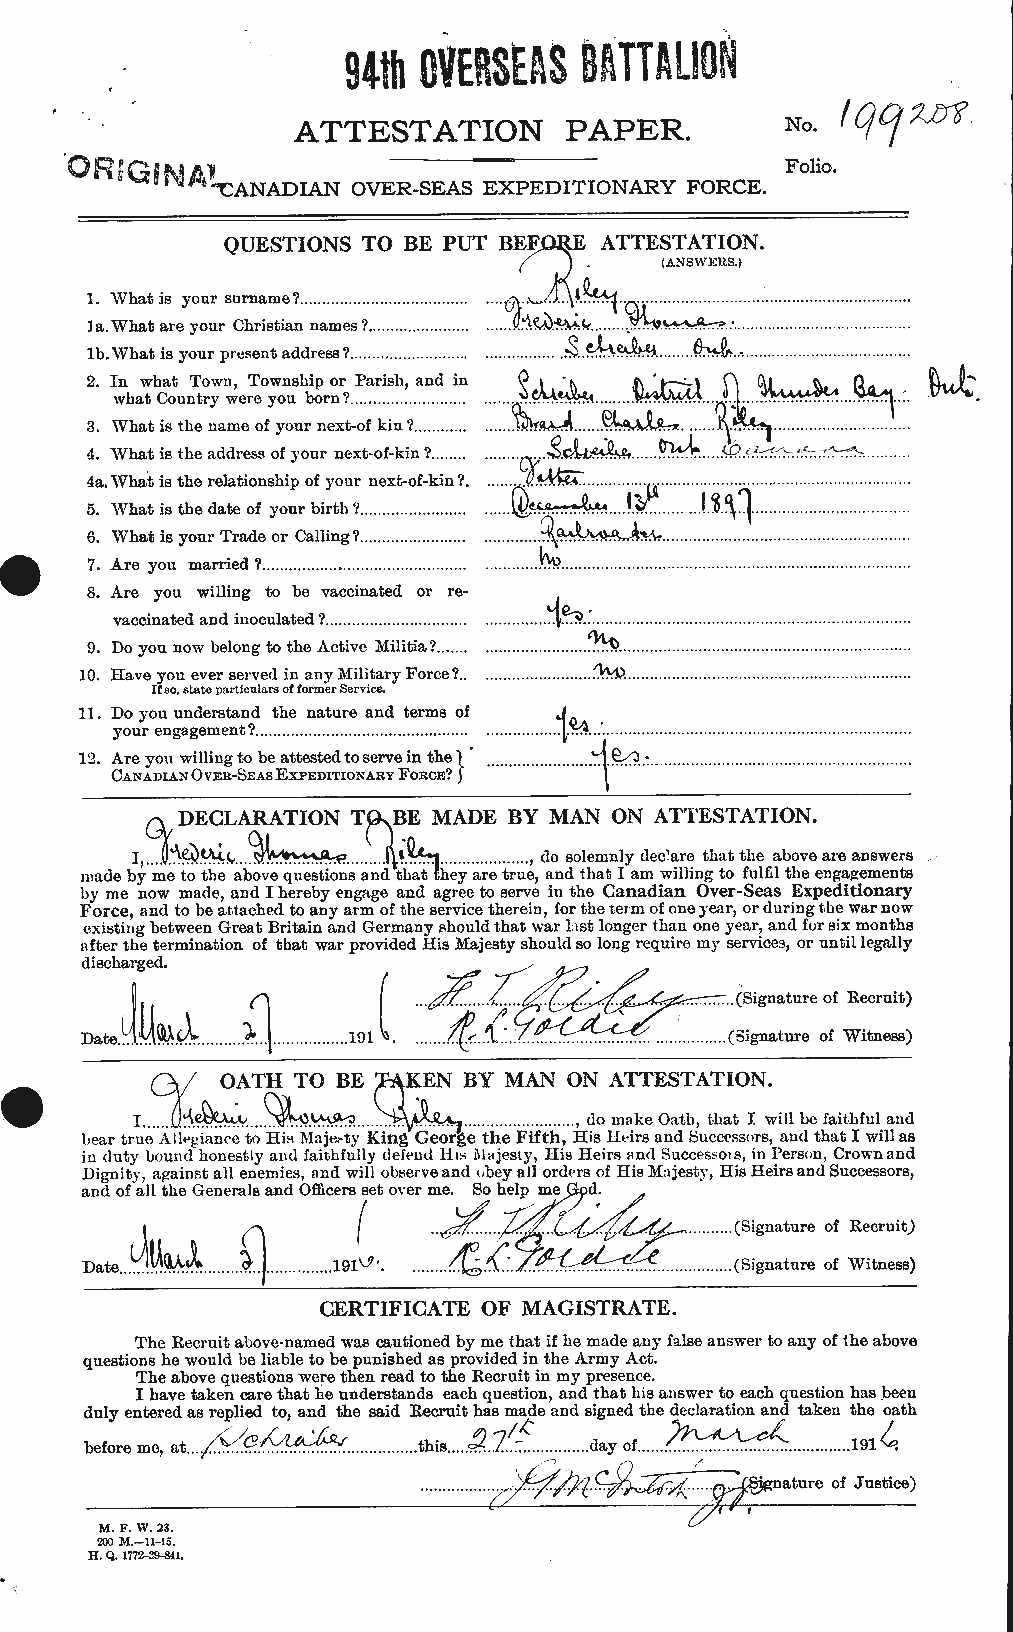 94th OVERSEAS BATTALION
ATTESTATION PAPER.
No. 199208.
Folio.
ORIGINAL
CANADIAN OVER-SEAS EXPEDITIONARY FORCE.
QUESTIONS TO BE PUT BEFORE ATTESTATION.
(ANSWERS.)
1. What is your surname?.... Riley
1a. What are your Christian names?.... Frederic Thomas.
1b. What is your present address?.... Schreiber Ont.
2. In what Town, Township or Parish, and in
what Country were you born?.... Schreiber District of Thunder Bay. Ont.
3. What is the name of your next-of kin?.... Charles Riley
4. What is the address of your next-of-kin?.... Schreiber Ont Canada
4a. What is the relationship of your next-of-kin?. Father
5. What is the date of your birth?.... December 13th 1897
6. What is your Trade or Calling?....
7. Are you married?.... No
8. Are you willing to be vaccinated or re-
vaccinated and inoculated?.... Yes.
9. Do you now belong to the Active Militia?.... No
10. Have you ever served in any Military Force?.. No
If so, state particulars of former Service.
11. Do you understand the nature and terms of
your engagement?.... Yes.
12. Are you willing to be attested to serve in the } Yes.
CANADIAN OVER-SEAS EXPEDITIONARY FORCE? }
DECLARATION TO BE MADE BY MAN ON ATTESTATION.
I, Frederic Thomas Riley, do solemnly declare that the above are answers
made by me to the above questions and that they are true, and that I am willing to fulfil the engagements
by me now made, and I hereby engage and agree to serve in the Canadian Over-Seas Expeditionary
Force, and to be attached to any arm of the service therein, for the term of one year, or during the war now
existing between Great Britain and Germany should that war last longer than one year, and for six months
after the termination of that war provided His Majesty should so long require my services, or until legally
discharged.
F T Riley (Signature of Recruit)
Date March 27 1916. R. L. Goldie (Signature of Witness)
OATH TO BE TAKEN BY MAN ON ATTESTATION.
I Frederic Thomas Riley, do make Oath, that I will be faithful and
bear true Allegiance to His Majesty King George the Fifth, His Heirs and Successors, and that I will as
in duty bound honestly and faithfully defend His Majesty, His Heirs and Successors, in Person, Crown and
Dignity, against all enemies, and will observe and obey all orders of His Majesty, His Heirs and Successors,
and of all the Generals and Officers set over me. So help me God.
F T Riley (Signature of Recruit)
Date March 27 1916. R. L. Goldie (Signature of Witness)
CERTIFICATE OF MAGISTRATE.
The Recruit above-named was cautioned by me that if he made any false answer to any of the above
questions he would be liable to be punished as provided in the Army Act.
The above questions were then read to the Recruit in my presence.
I have taken care that he understands each question, and that his answer to each question has been
duly entered as replied to, and the said Recruit has made and signed the declaration and taken the oath
before me, at Schreiber this 27th day of March 1916.
McIntosh J.P. (Signature of Justice)
M. F. W. 23.
200 M.—11-15.
H. Q. 1772-39-841.